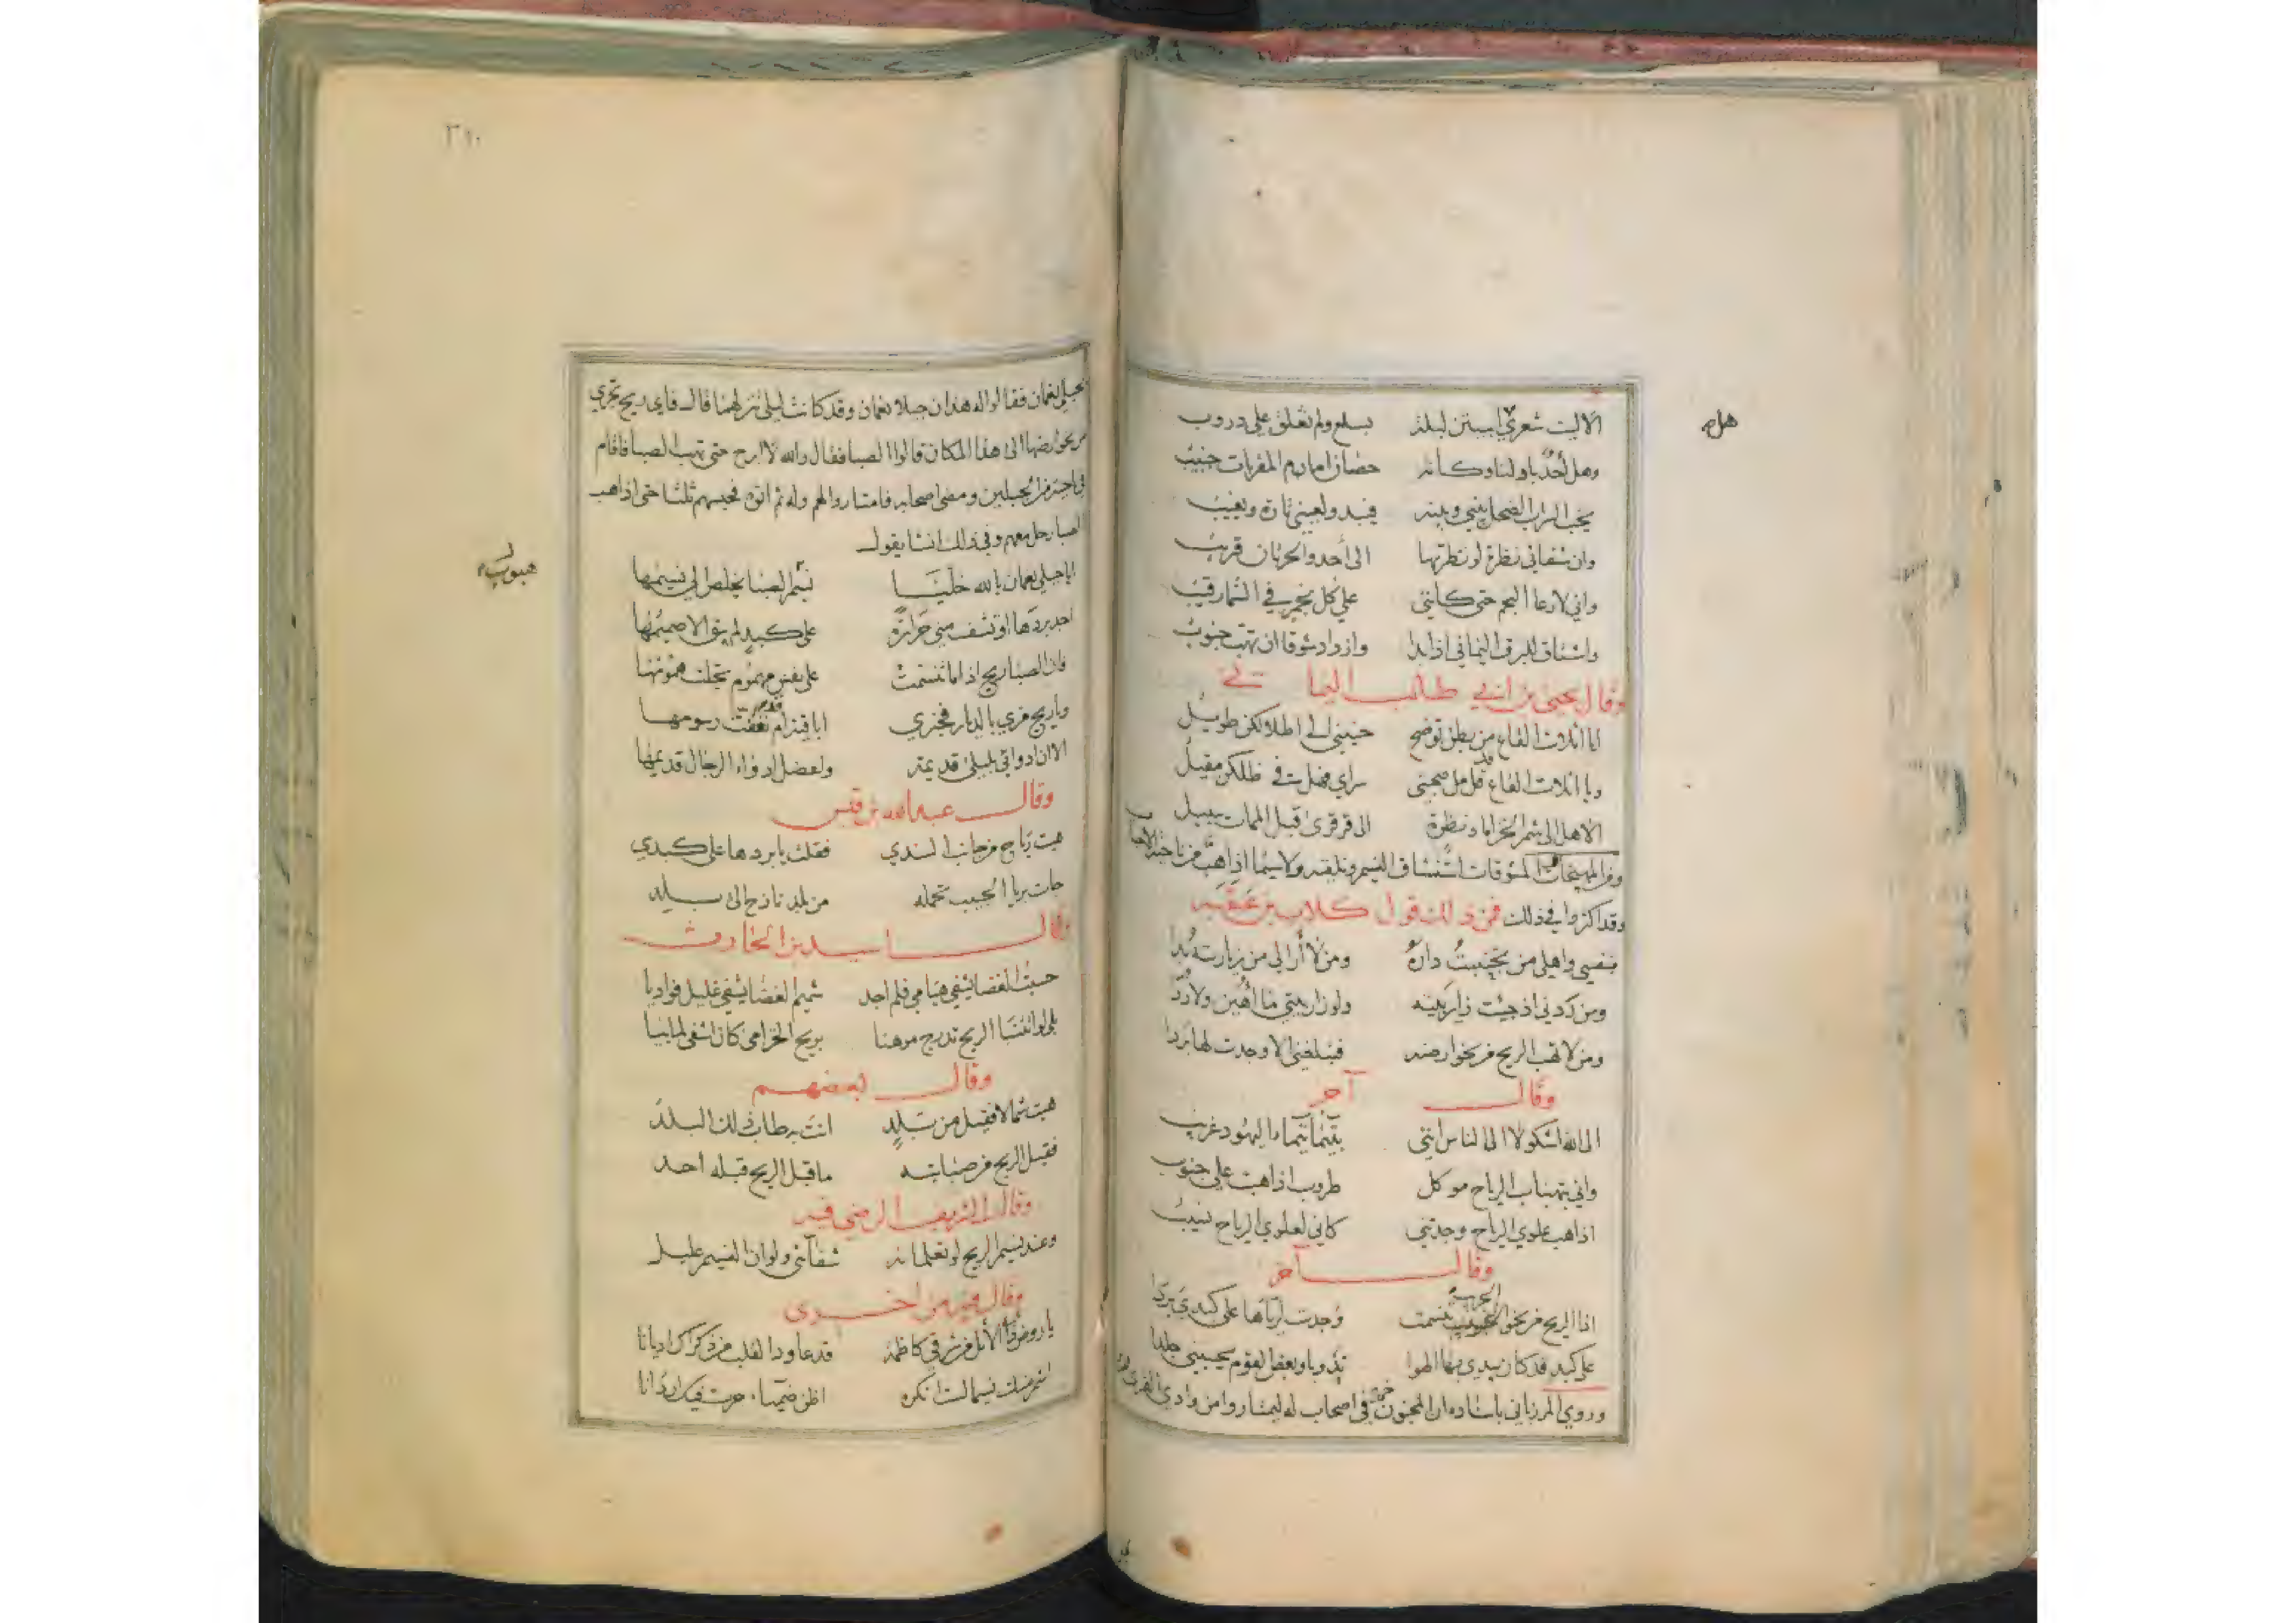 الا ليت شعري ابيتن ليلة بسلع ولم تغلق علي دروب
هل
وهل أحد باد لنا وكانه حصان امام المقربات جنيب
يخب السراب الضحل بيني وبينه فيبدو لعيني تارة ويغيب
وان شفائي نظرة لو نظرتها الى أحد والحرتان قريب
واني لارعا النجم حتى كانني على كل نجم في السماء رقيب
واشتاق للبرق اليماني اذا بدا وازداد شوقا ان تهب جنوب
وقال يحيى بن ابي طالب
ايا اثلاث القاع من بطن توضح حنيني الى اطلالكن طويل
ويا اثلاث القاع قد مل صحبتي في ظلكن مقيل
الا هل الى شم الخزاما ونظرة الى قرقرى قبل الممات سبيل
ومن المهيجات المشوقات استنشاق النسيم وتلقيه ولا سيما اذا هب من ناحية الاحباب
وقد اكثروا في ذلك فمن ذلك قول كلاب بن عقبة
بنفسي واهلي من تجنبت داره ومن لا أرا لي من زيارته بدا
ومن ردني اذ جئت زاير بيته ولو زار بيتي ما اهين ولا ردا
ومن لا تهب الريح من نحو ارضه فتبلغني الا وجدت لها بردا
وقال آخر
الى الله اشكو لا الى الناس انني بتيما تيماء اليهود غريب
واني بتهباب الرياح موكل طروب اذا هبت علي جنوب
اذا هب علوي الرياح وجدتني كاني لعلوي الرياح نسيب
وقال آخر
اذا الريح من نحو الحبيب تنسمت وجدت لرياها على كبدي بردا
على كبد قد كان يبدي بها الهوا ندوبا وبعض القوم يحسبني جلدا
وروي المرزباني باسناده ان المجنون خرج في اصحاب له ليمتاروا من وادي القرى
٣١٠
بجبلي نعمان فقالوا له هذان جبلا نعمان وقد كانت ليلى تنزلهما قال فاي ريح تجري
من نحو ارضها الى هذا المكان قالوا الصبا فقال والله لا ابرح حتى تهب الصبا فاقام
في ناحية من الجبلين ومضى اصحابه فامتاروا لهم وله ثم اتوه فحبسهم ثلثا حتى اذا هب
الصبا رحل معهم وفي ذلك انشا يقول
هبوب
ايا جبلي نعمان بالله خليا نسيم الصبا يخلص الي نسيمها
اجد بردها او تشف مني حرارة على كبد لم يبق الا صميمها
فان الصبا ريح اذا ما تنسمت على نفس مهموم تجلت همومها
ويا ريح مري بالديار فخبري اباقية ام قد تعفت رسومها
الا ان ادوائي بليلى قديمة وبعض ادواء الرجال قديمها
وقال عبد الله بن قيس
هبت رياح من جانب السندي فقلت يا بردها على كبدي
جات بريا الحبيب تحمله من بلد نازح الى بلد
وقال اسيد بن الحارث
حسبت الغضا يشفي هيامي فلم اجد شميم الغضا يشفي غليل فواديا
بلى لو اتتنا الريح تدرج موهنا بريح الخزامى كان اشفى لما بيا
وقال بعضهم
هبت شمالا فقيل من بلد انت به طاب ذلك البلد
فقبل الريح من صبابته ما قبل الريح قبله احد
وقال الشريف الرضي فيه
وعند نسيم الريح لو تعلمانه شفائي ولو ان النسيم عليل
وقال فيه من اخرى
يا روض ذا الأثل من شرقي كاظمة قد عاود القلب من ذكراك اديانا
اشم منك نسيما لست انكره اظن ظمياء جرت فيك اردانا